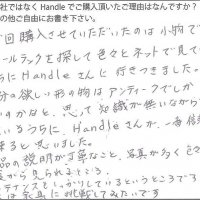 社ではなく Handle でご購入頂いたご理由はなんですか?
の他ご自由にお書き下さい。
回購入させていただいたのは小物で
ールラックを探して色々とネットで見て
にHandleさんに行きつきました。
分の欲しい形や物はアンティークでしか
のかなと、思って知識が無いながら
いるうちに、Handleさんが一番信
来ると思いました。
品の説明が丁寧なこと、写真が多く色々
度から見られるところ、
テナンスをしっかりしているというところです
は家具に挑戦してみたいです